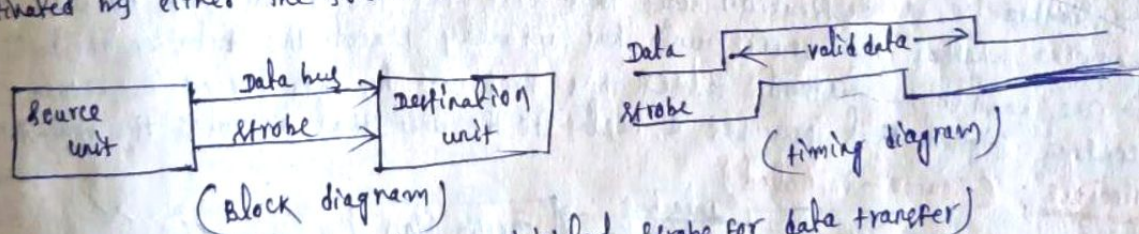 by either the
Data bus
Source unit
Strobe
Destination unit
(Block diagram)
Data
valid data
Strobe
(timing diagram)
strobe for data transfer)